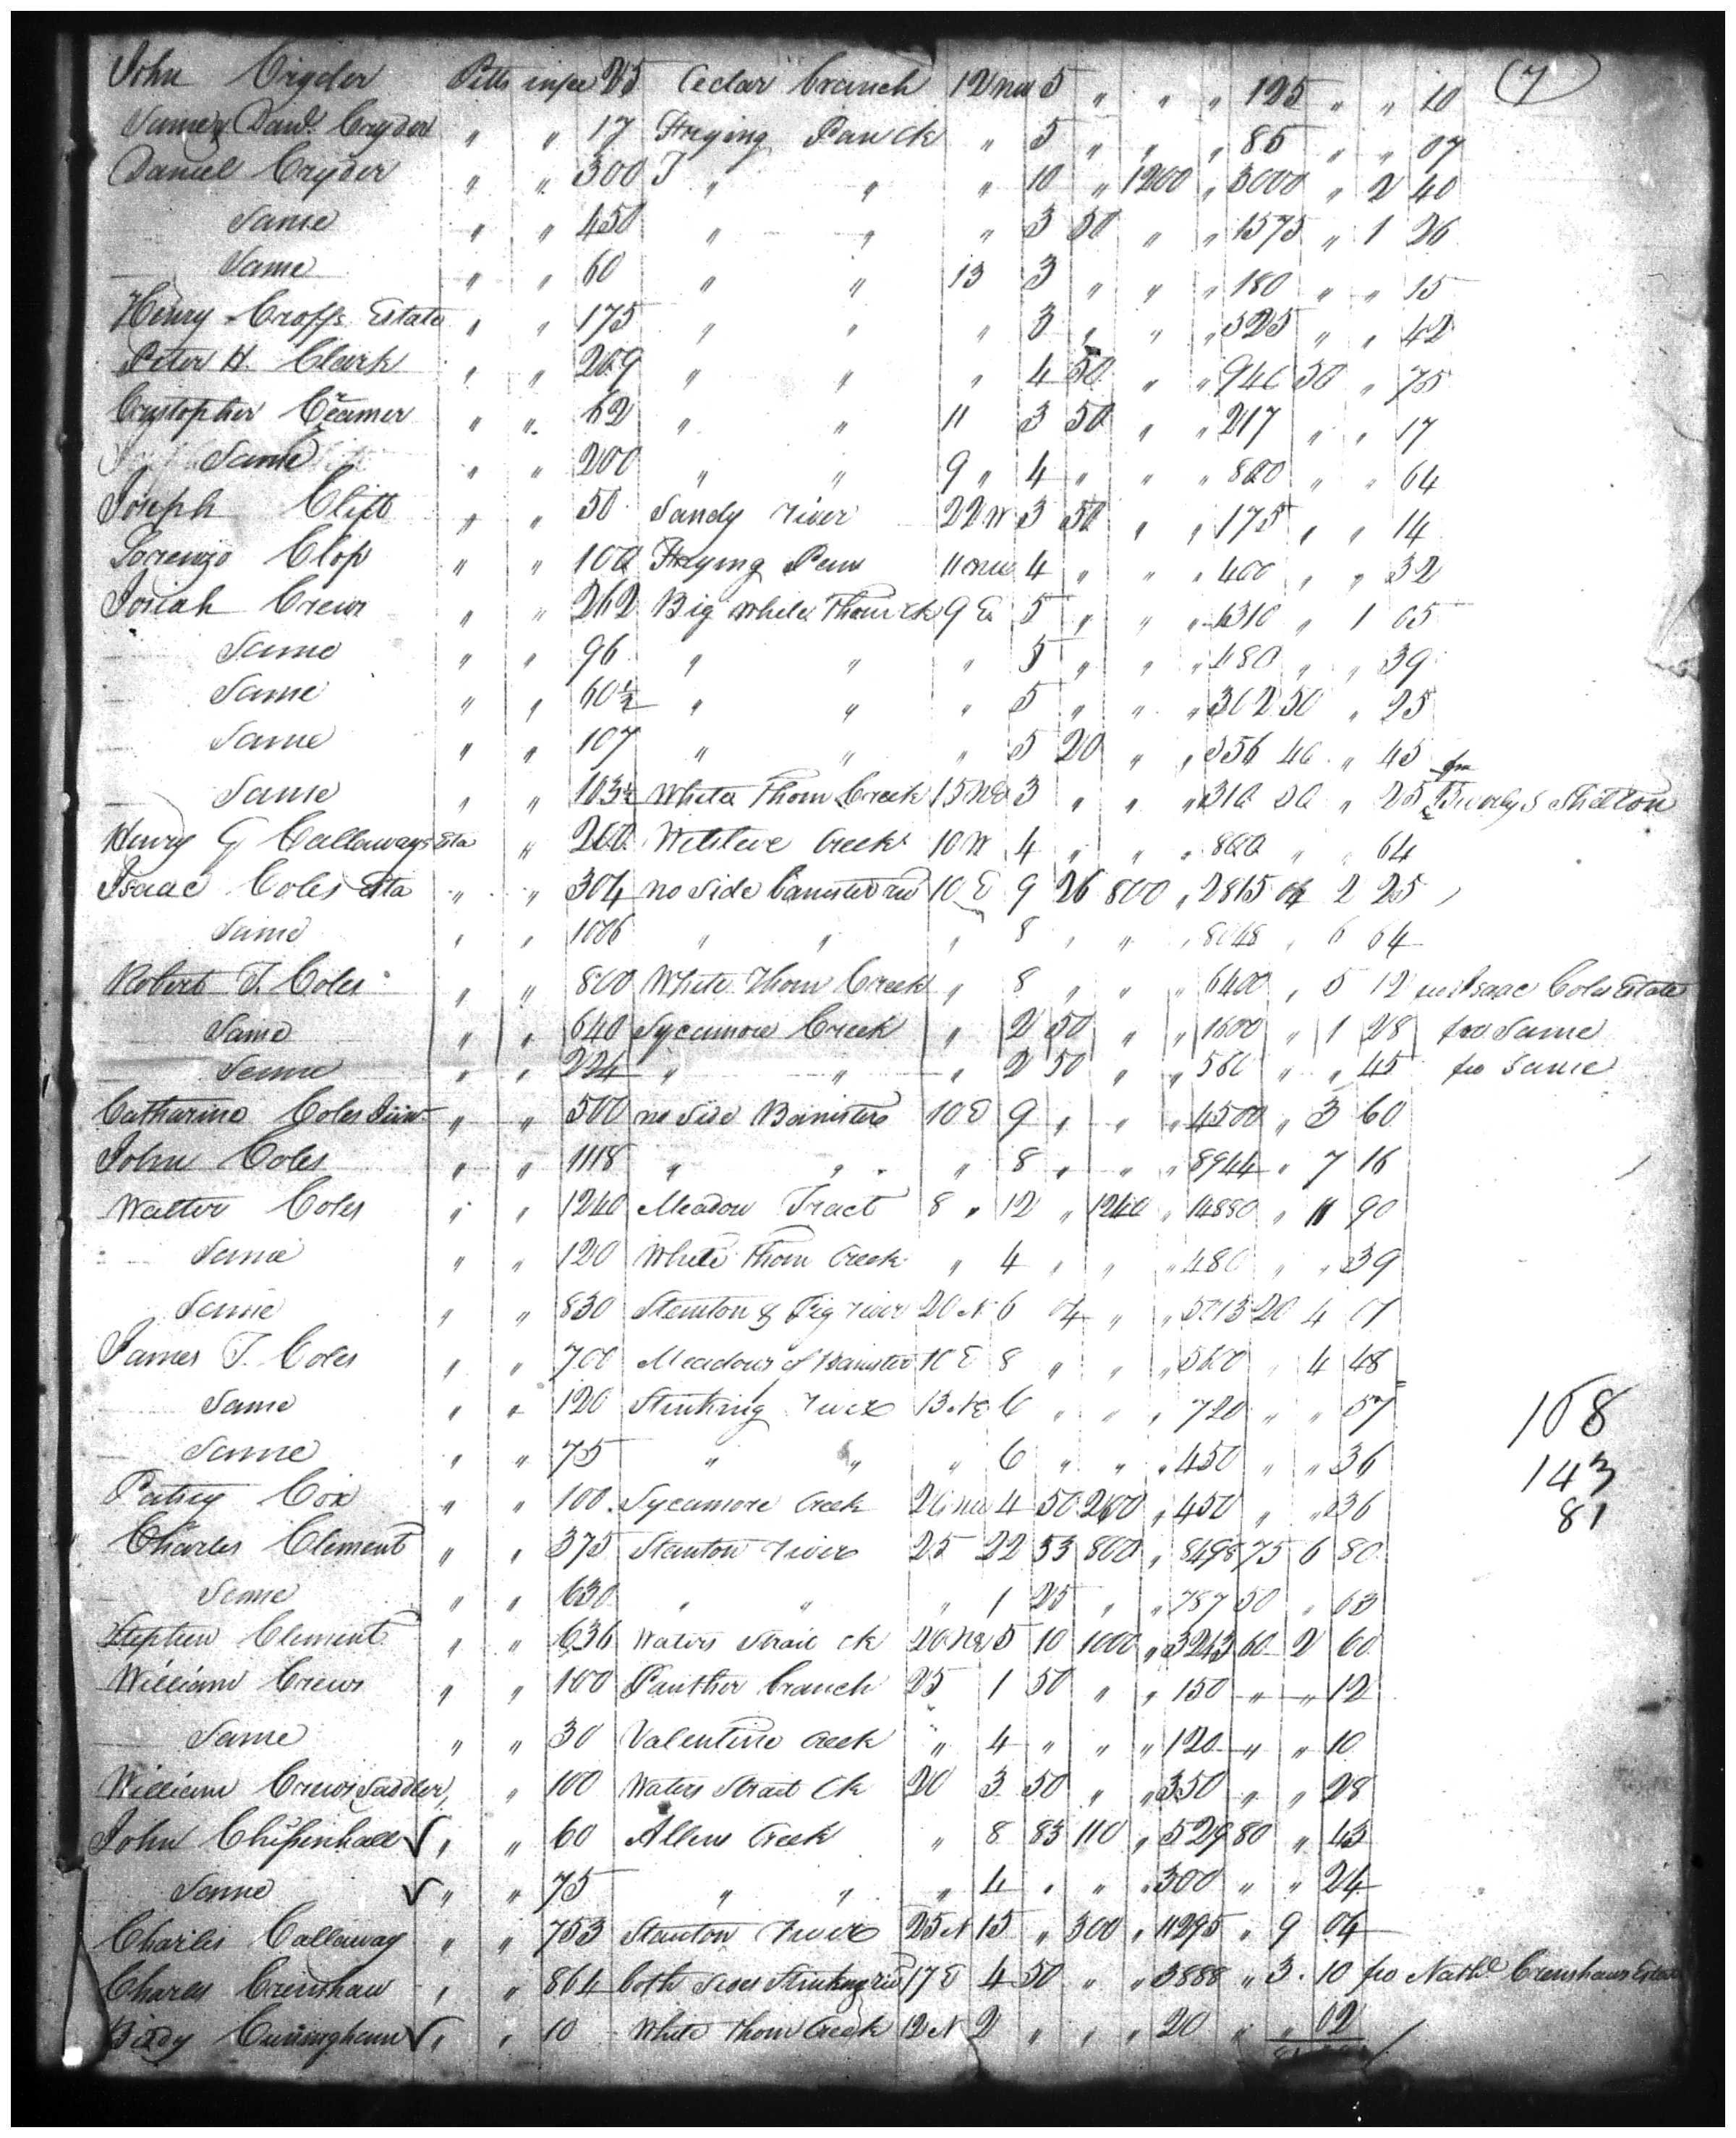 John Cryder Pitts in fee 25 Cedar branch 12 nw 5 " " " 125 " " 10 (7)
Danl. Cryder " " 17 Frying Pan Ck " 5 " " " 85 " " 07
Daniel Cryder " " 300 " " " 10 " 1200 " 3000 " 2 40
Same " " 450 " " " 3 50 " " 1575 " 1 26
Same " " 60 " " 13 3 " " " 180 " " 15
Henry Estate " " 175 " " " 3 " " " 525 " " 42
Peter H. Clark " " 209 " " " 4 50 " " 940 50 " 75
Crystopher Creamer " " 62 " " 11 3 50 " " 217 " " 17
Same " " 200 " " 9 " 4 " " " 800 " " 64
Joseph Clift " " 50 Sandy river 22 W 3 50 " " 175 " " 14
Lorenzo Clop " " 100 Frying Pan 11 nw 4 " " " 400 " " 32
Josiah Crews " " 262 Big White Thorn ck 9 E 5 " " " 1310 " 1 05
Same " " 96 " " " 5 " " " 480 " " 39
Same " " 60½ " " " 5 " " " 302 50 " 25
Same " " 107 " " " 5 20 " " 556 40 " 45
Same " " 103½ White Thorn Creek 15 NE 3 " " " 310 50 " 25 fm Beverly S Shelton
Henry G Callaways Esta " 200 Creek 10 W 4 " " " 800 " " 64
Isaac Coles Esta " " 304 no side Banister riv 10 E 9 26 800 " 2815 04 2 25
Same " " 1006 " " " 8 " " " 8048 " 6 64
Robert T. Coles " " 800 White Thorn Creek " 8 " " " 6400 " 5 12 Isaac Coles Estate
Same " " 640 Sycamore Creek " 2 50 " " 1600 " 1 28 fro Same
Same " " 224 " " " 2 50 " " 560 " " 45 fro Same
Catharine Coles Junr " " 500 no side Banister 10 E 9 " " " 4500 " 3 60
John Coles " " 1118 " " " 8 " " " 8944 " 7 16
Walter Coles " " 1240 Meadow Tract 8 " 12 " 1240 " 14880 " 11 90
Same " " 120 White Thorn Creek " 4 " " " 480 " " 39
Same " " 830 Stanton & Pig river 20 N 6 04 " " 5013 20 4 01
James T. Coles " " 700 Meadows of Banister 10 E 8 " " " 560 " 4 48
Same " " 120 Stinking river 13 NE 6 " " " 720 " " 57 108
Same " " 75 " " " 6 " " " 450 " " 36 143
Patsey Cox " " 100 Sycamore Creek 20 nw 4 50 200 " 450 " " 36 81
Charles Clement " " 375 Stanton river 25 22 53 800 " 8498 75 6 80
Same " " 630 " " " 1 25 " " 787 50 " 63
Stephen Clement " " 636 Waters Strait ck 20 NE 5 10 1000 " 3243 60 2 60
William Crews " " 100 Panther branch 25 1 50 " " 150 " " 12
Same " " 30 Valentine Creek " 4 " " " 120 " " 10
William Crews Saddler " " 100 Waters Strait Ck 20 3 50 " " 350 " " 28
John Chipenhall √ " " 60 Allens Creek " 8 83 110 " 529 80 " 43
Same √ " " 75 " " " 4 " " " 300 " " 24
Charles Callaway " " 753 Stanton river 25 N 15 " 300 " 11295 " 9 04
Charles Crenshaw " " 864 both sides Stinking riv 17 E 4 50 " " 3888 " 3 10 fro Nathl. Crenshaws Estate
Cuningham √ " " 10 White Thorn Creek 12 N 2 " " " 20 " " 02